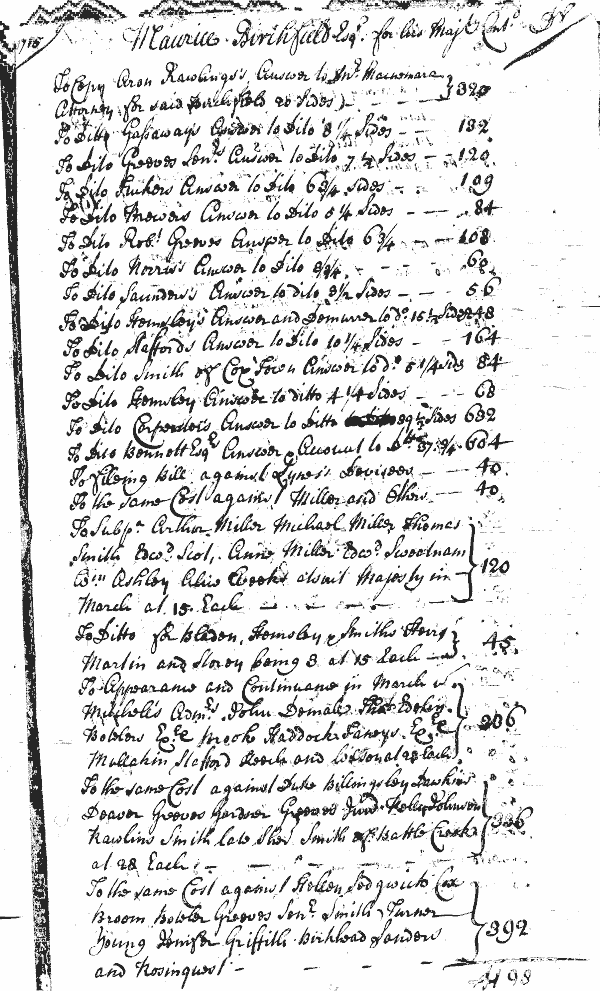 1715 Maurice Birchfield Esqr. for his Majty Dr
To Copy Aron Rawlings's Answer to Jno. Macnemara
Attorney for said Birchfield 20 Sides } 320
To Ditto Gassaways Answer to Ditto 8 1/4 Sides - - 132
To Ditto Greeves Senrs. Answer to Ditto 7 1/2 Sides - - 120
To Ditto Answer to Ditto 6 3/4 Sides - - 109
To Ditto Mewers Answer to Ditto 5 1/4 Sides - - 84
To Ditto Robt. Greeves Answer to Ditto 6 3/4 - - 108
To Ditto Norris's Answer to Ditto - - 60
To Ditto Saunders's Answer to ditto 3 1/2 Sides - - 56
To Ditto Hemsley's Answer and Demurrer to do. 15 1/2 Sides 248
To Ditto Staffords Answer to Ditto 10 1/4 Sides - 164
To Ditto Smith of Cox Town Answer to do. 5 1/4 Sides 84
To Ditto Hemsley Answer to ditto 4 1/4 Sides - 68
To Ditto Carpenters Answer to Ditto 39 1/2 Sides 632
To Ditto Bennett Esqr. Answer & Account to 37 3/4 - 604
To fileing Bill against Lynes's Devisees - - 40
To the same Cost against Miller and Others - - 40
To Subpa. Arthur Miller Michael Miller Thomas
Smith Edwd. Scot, Anne Miller Edwd. Sweetnam
Wm Ashley Alice Weeks atsuit Majesty in
March at 15 Each } 120
To Ditto for Bladen, Hemsley & Smiths Heirs
Martin and Storey being 3 at 15 Each } 45
To Appearance and Continuance in March v.
Mitchell's Admrs. John Demale
Bowlers Exrs Brooke Haddock Taneys Exrs
Mullakin Stafford and at 28 Each } 206
To the same Cost against Duke Billingsley Hawkins
Deaver Greeves Gardner Greeves Junr. Kelly Johnson
Rawlins Smith late Sher. Smith of Battle Creek
at 28 Each - - } 336
To the same Cost against Hellen Sedgwick Cox
Broom Bowler Greeves Senr. Smith Turner
Young Jenifer Griffith Birkhead Sanders
and Rosinquest - - } 392
4198